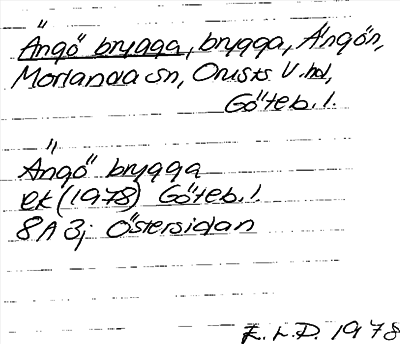 Ängö brygga, brygga, Ängön,
Morlanda sn, Orusts V. hd,
Göteb. l.
Ängö brygga
ek (1978) Göteb. l.
8A 3j Östersidan
E. L. D. 1978